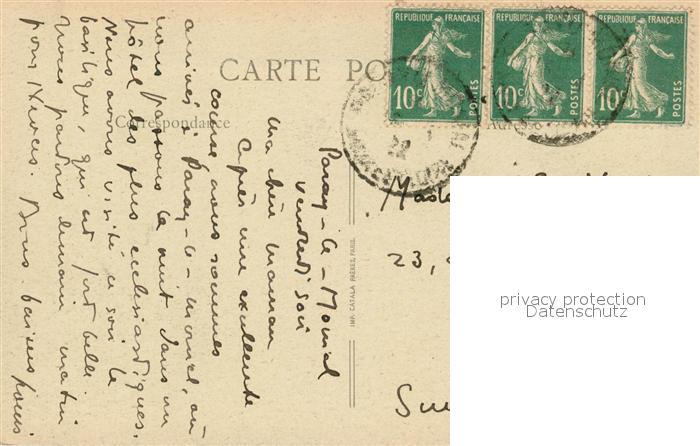 REPUBLIQUE FRANÇAISE
10c POSTES
REPUBLIQUE FRANÇAISE
10c POSTES
REPUBLIQUE FRANÇAISE
10c POSTES
CARTE PO
Correspondance
Adresse
Paray-le-Monial
vendredi soir
Ma chère maman
Après une excellente
course nous sommes
arrivés à Paray-le-Monial, où
nous passons la nuit dans un
hôtel des plus ecclésiastiques.
Nous avons visité ce soir la
basilique, qui est fort belle.
Nous partons demain matin
pour Nevers. Bons baisers
IMP. CATALA FRÈRES, PARIS
23,
privacy protection
Datenschutz